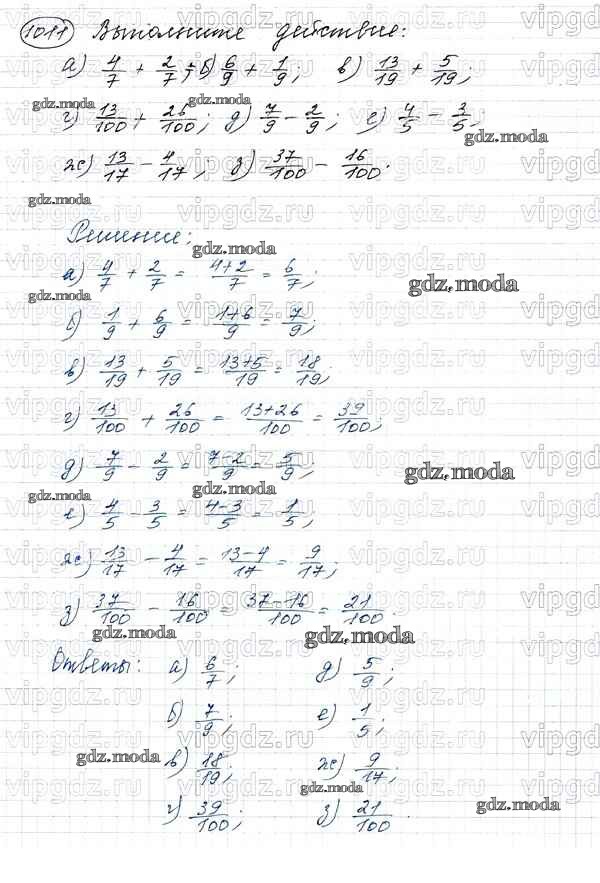 1011 Выполните действие:
а) 4/7 + 2/7; б) 6/9 + 1/9; в) 13/19 + 5/19;
г) 13/100 + 26/100; д) 7/9 - 2/9; е) 4/5 - 3/5;
ж) 13/17 - 4/17; з) 37/100 - 16/100.
Решение:
а) 4/7 + 2/7 = 4+2/7 = 6/7;
б) 1/9 + 6/9 = 1+6/9 = 7/9;
в) 13/19 + 5/19 = 13+5/19 = 18/19;
г) 13/100 + 26/100 = 13+26/100 = 39/100;
д) 7/9 - 2/9 = 7-2/9 = 5/9;
е) 4/5 - 3/5 = 4-3/5 = 1/5;
ж) 13/17 - 4/17 = 13-4/17 = 9/17;
з) 37/100 - 16/100 = 37-16/100 = 21/100.
Ответы: а) 6/7; д) 5/9;
б) 7/9; е) 1/5;
в) 18/19; ж) 9/17;
г) 39/100; з) 21/100.
gdz.moda
vipgdz.ru